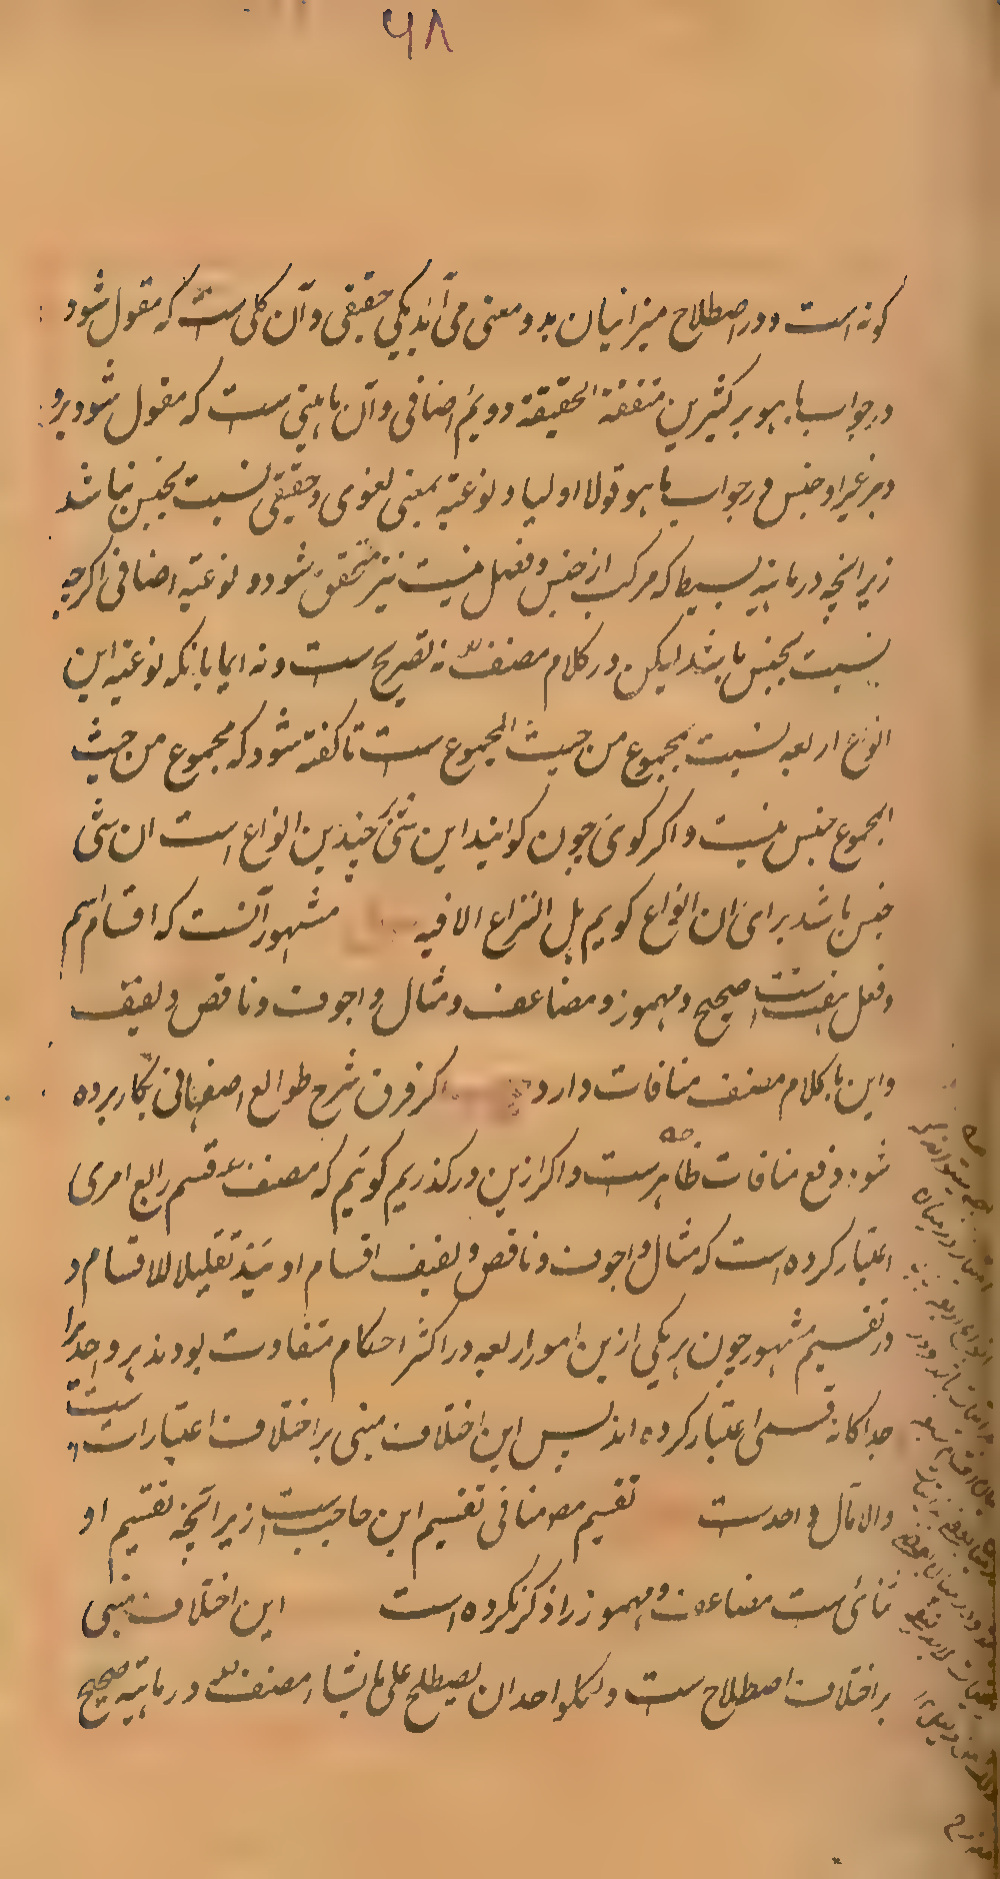 ۶۸
کونه است و در اصطلاح میزانیان بدو معنی می آید یکی حقیقی و آن کلی ست که مقول شود
در جواب ما هو بر کثیرین متفقة الحقیقة دویم اضافی و آن ماهیتی ست که مقول شود برو
و بر غیر او جنس در جواب ما هو قولا اولیا و نوعیة بمعنی لغوی و حقیقی نسبت بجنس نباشد
زیرا نچه در ماهیة بسیط که مرکب از جنس و فصل نیست نیز متحقق شود و نوعیة اضافی اکرچه
نسبت بجنس باشد لیکن در کلام مصنف نه تصریح ست و نه ایما بانکه نوعیة این
انواع اربعه نسبت بمجموع من حیث المجموع ست تا کفته شود که مجموع من حیث
المجموع جنس نیست و اکر کوی چون کوایند این شئ چندین انواع است ان شی
جنس باشد برای ان انواع کویم بل النزاع الا فیه مشهور آنست که اقسام اسم
و فعل هفت است صحیح و مهموز و مضاعف و مثال و اجوف و ناقص و لفیف
و این با کلام مصنف منافات دارد اکر فرق شرح طوالع اصفهانی بکار برده
شود دفع منافات ظاهرست و اکر ازین در کذریم کویم که مصنف قسم رابع امری
اعتبار کرده است که مثال و اجوف و ناقص و لفیف اقسام اویند تقلیلا للاقسام و
در تقسیم مشهور چون هر یکی ازین امور اربعه در اکثر احکام متفاوت بودند هر واحد را
جداکانه قسمی اعتبار کرده اند پس این اختلاف مبنی بر اختلاف اعتبارات ست
والامآل واحدست تقسیم مص منافی تقسیم ابن حاجب ست زیرا نچه تقسیم او
ثنائی ست مضاعف و مهموز را ذکر نکرده است این اختلاف مبنی
بر اختلاف اصطلاح ست و لکل واحد ان یصطلح علی ما یشاء مصنف در ماهیة صحیح